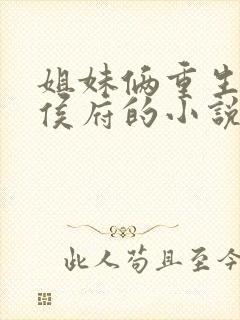 姐妹俩重生
侯府的小說
此人苟且至今